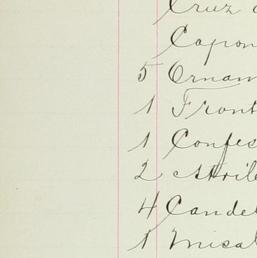 Cruz
Capon
5 Ornam
1 Front
1 Confes
2 Atril
4 Candel
1 Misal